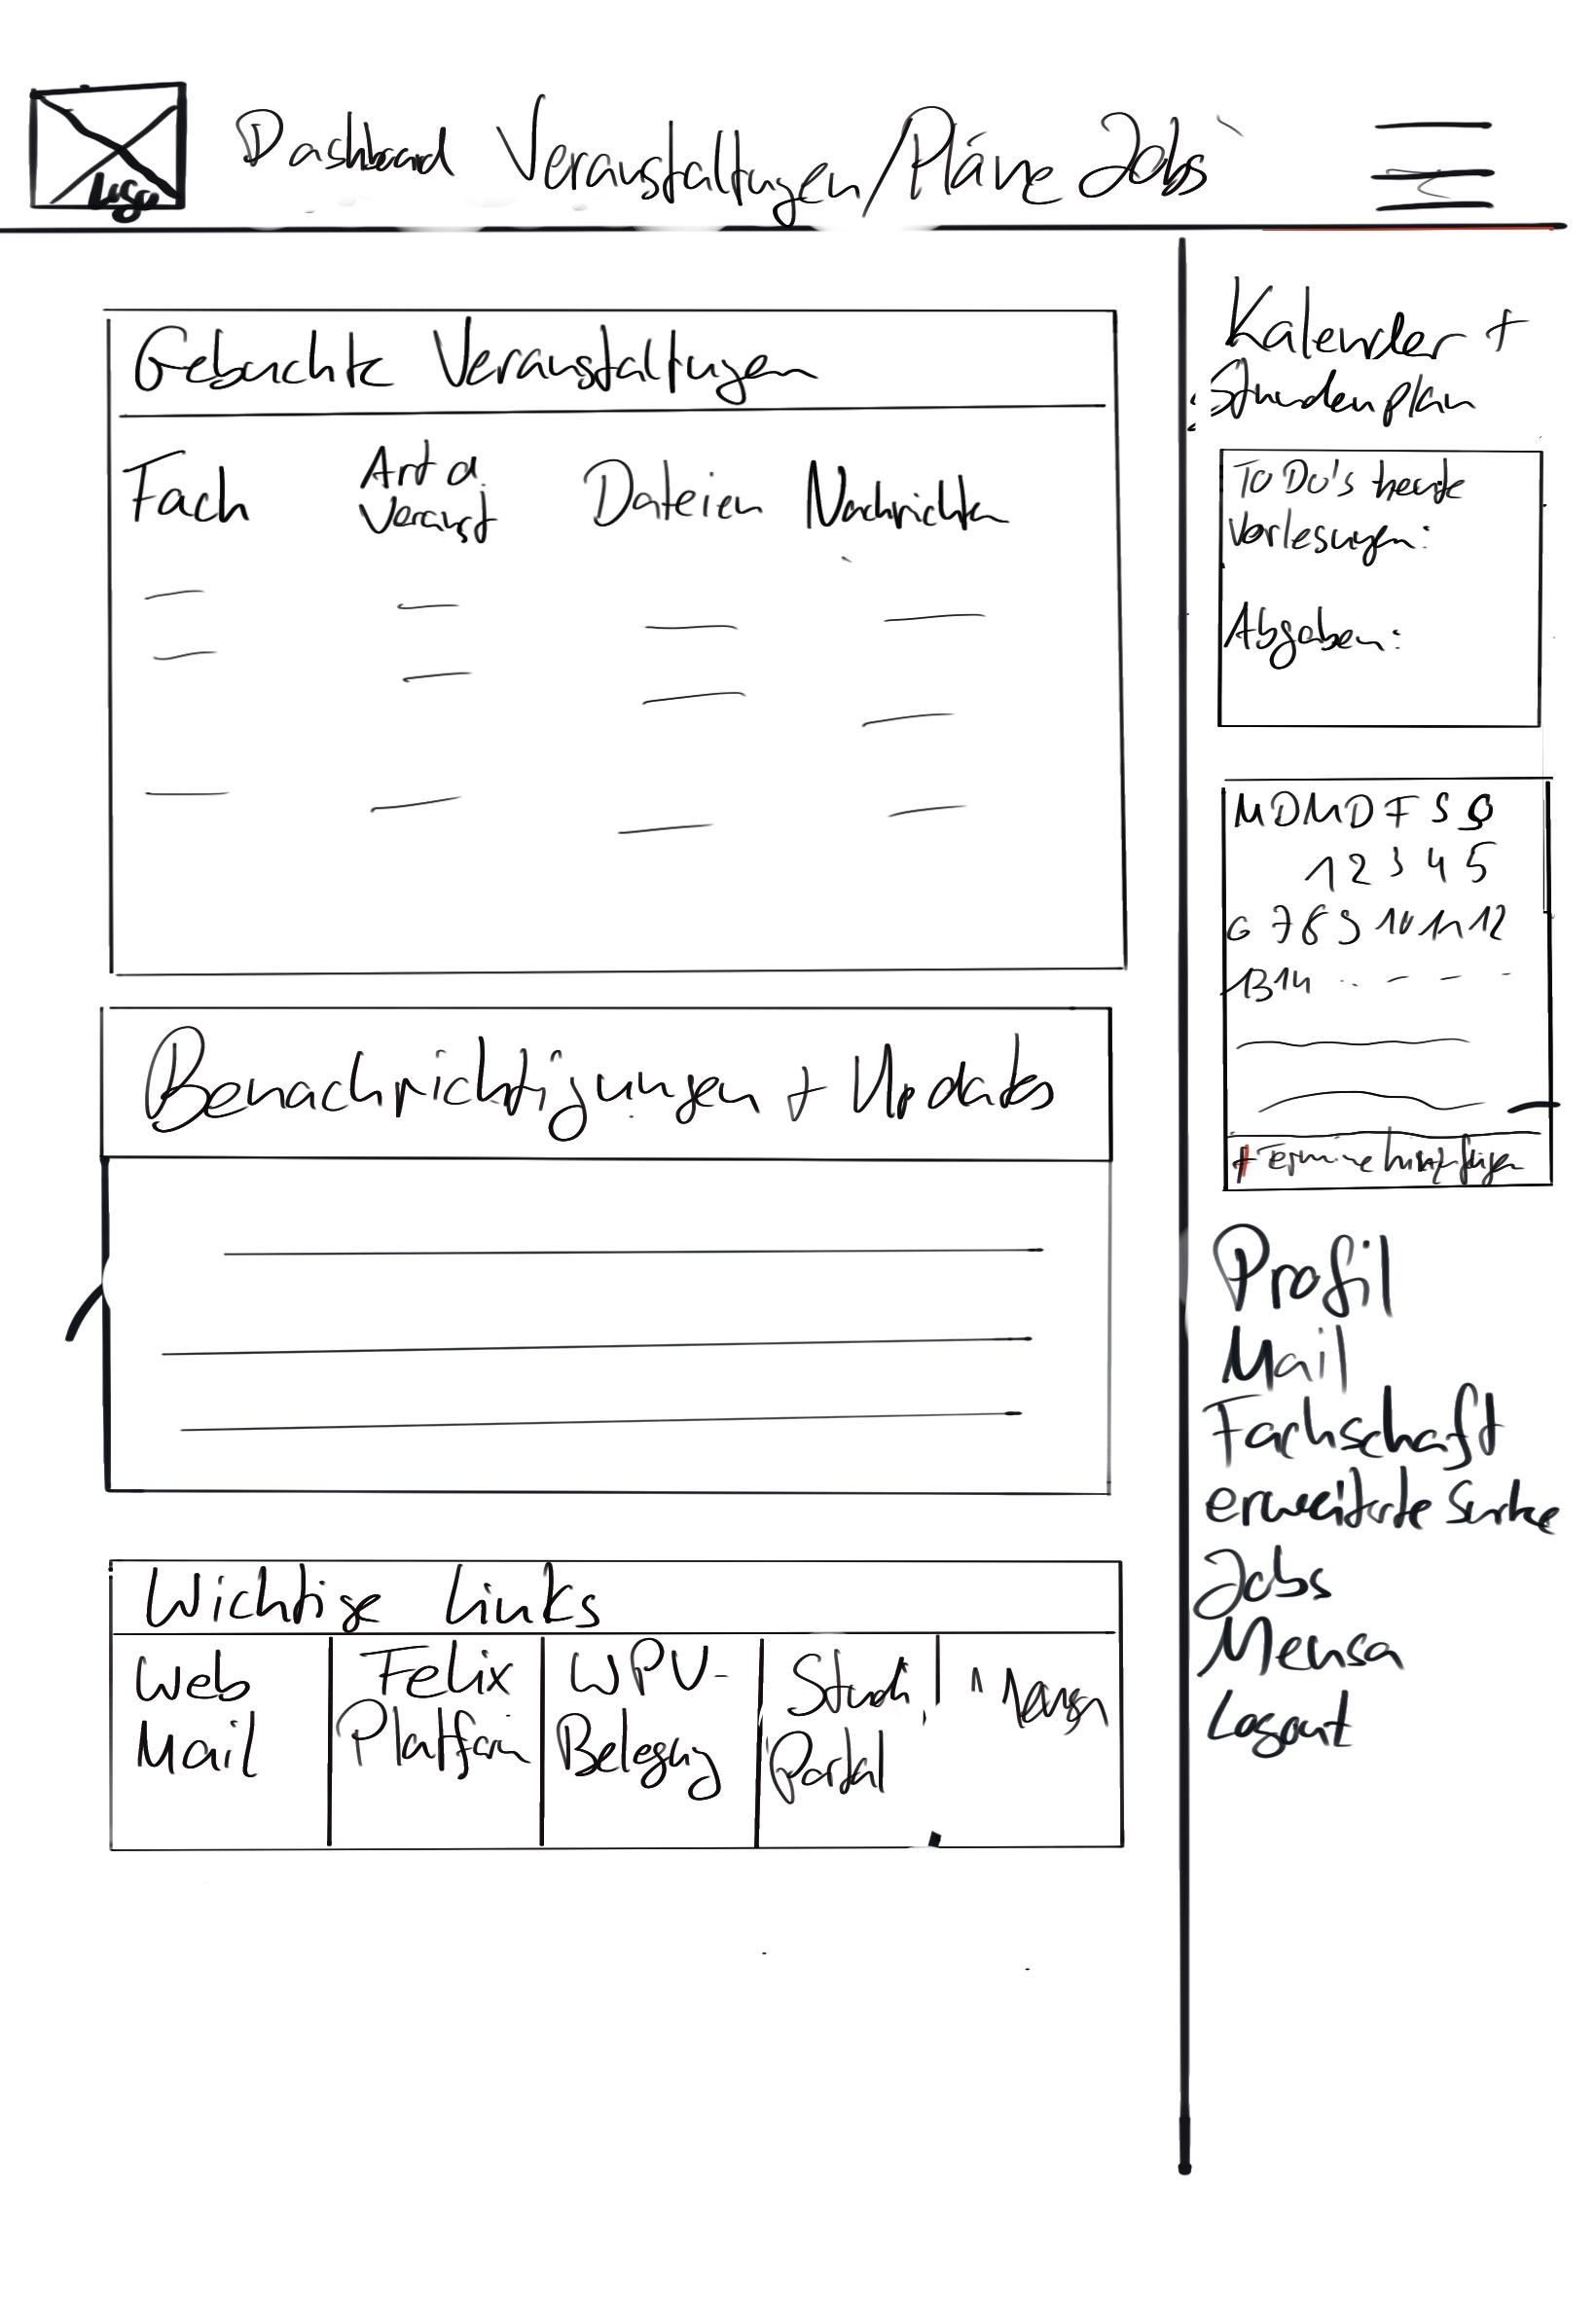 Logo
Dashboard Veranstaltungen/Pläne Jobs
Gebuchte Veranstaltungen
Fach Art d. Veranst Dateien Nachrichten
Benachrichtigungen + Updates
Wichtige Links
Web Mail
Felix Platform
WPV-Belegung
Studi Portal
Kalender +
Stundenplan
To Do's heute
Vorlesungen:
Abgaben:
M D M D F S S
1 2 3 4 5
6 7 8 9 10 11 12
13 14
+ Termine hinzufügen
Profil
Mail
Fachschaft
erweiterte Suche
Jobs
Mensa
Logout